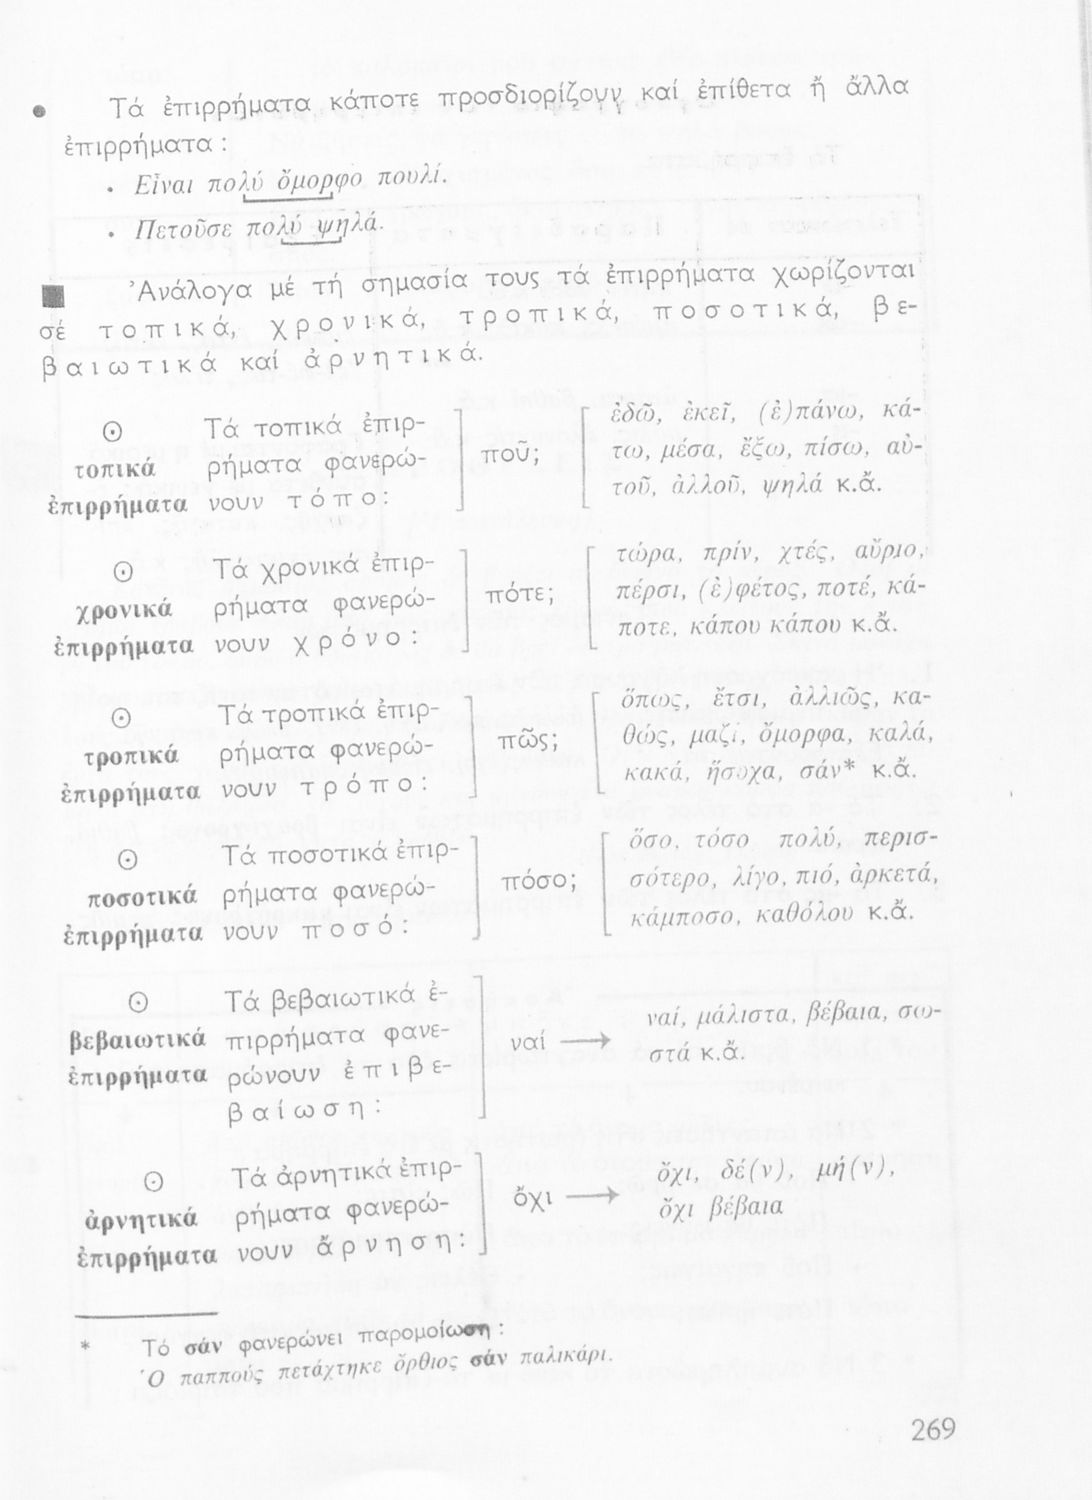 • Τά ἐπιρρήματα κάποτε προσδιορίζουν καί ἐπίθετα ἤ ἄλλα
ἐπιρρήματα :
• Εἶναι πολύ ὄμορφο πουλί.
• Πετοῦσε πολύ ψηλά.
■ Ἀνάλογα μέ τή σημασία τους τά ἐπιρρήματα χωρίζονται
σέ τοπικά, χρονικά, τροπικά, ποσοτικά, βε-
βαιωτικά καί ἀρνητικά.
⊙ Τά τοπικά ἐπιρ-
τοπικά ρήματα φανερώ-
ἐπιρρήματα νουν τόπο:
ποῦ;
ἐδῶ, ἐκεῖ, (ἐ)πάνω, κά-
τω, μέσα, ἔξω, πίσω, αὐ-
τοῦ, ἀλλοῦ, ψηλά κ.ἄ.
⊙ Τά χρονικά ἐπιρ-
χρονικά ρήματα φανερώ-
ἐπιρρήματα νουν χρόνο:
πότε;
τώρα, πρίν, χτές, αὔριο,
πέρσι, (ἐ)φέτος, ποτέ, κά-
ποτε, κάπου κάπου κ.ἄ.
⊙ Τά τροπικά ἐπιρ-
τροπικά ρήματα φανερώ-
ἐπιρρήματα νουν τρόπο:
πῶς;
ὅπως, ἔτσι, ἀλλιῶς, κα-
θώς, μαζί, ὄμορφα, καλά,
κακά, ἥσυχα, σάν* κ.ἄ.
⊙ Τά ποσοτικά ἐπιρ-
ποσοτικά ρήματα φανερώ-
ἐπιρρήματα νουν ποσό:
πόσο;
ὅσο, τόσο πολύ, περισ-
σότερο, λίγο, πιό, ἀρκετά,
κάμποσο, καθόλου κ.ἄ.
⊙ Τά βεβαιωτικά ἐ-
βεβαιωτικά πιρρήματα φανε-
ἐπιρρήματα ρώνουν ἐπιβε-
βαίωση:
ναί →
ναί, μάλιστα, βέβαια, σω-
στά κ.ἄ.
⊙ Τά ἀρνητικά ἐπιρ-
ἀρνητικά ρήματα φανερώ-
ἐπιρρήματα νουν ἄρνηση:
ὄχι →
ὄχι, δέ(ν), μή(ν),
ὄχι βέβαια
* Τό σάν φανερώνει παρομοίωση :
Ὁ παππούς πετάχτηκε ὄρθιος σάν παλικάρι.
269